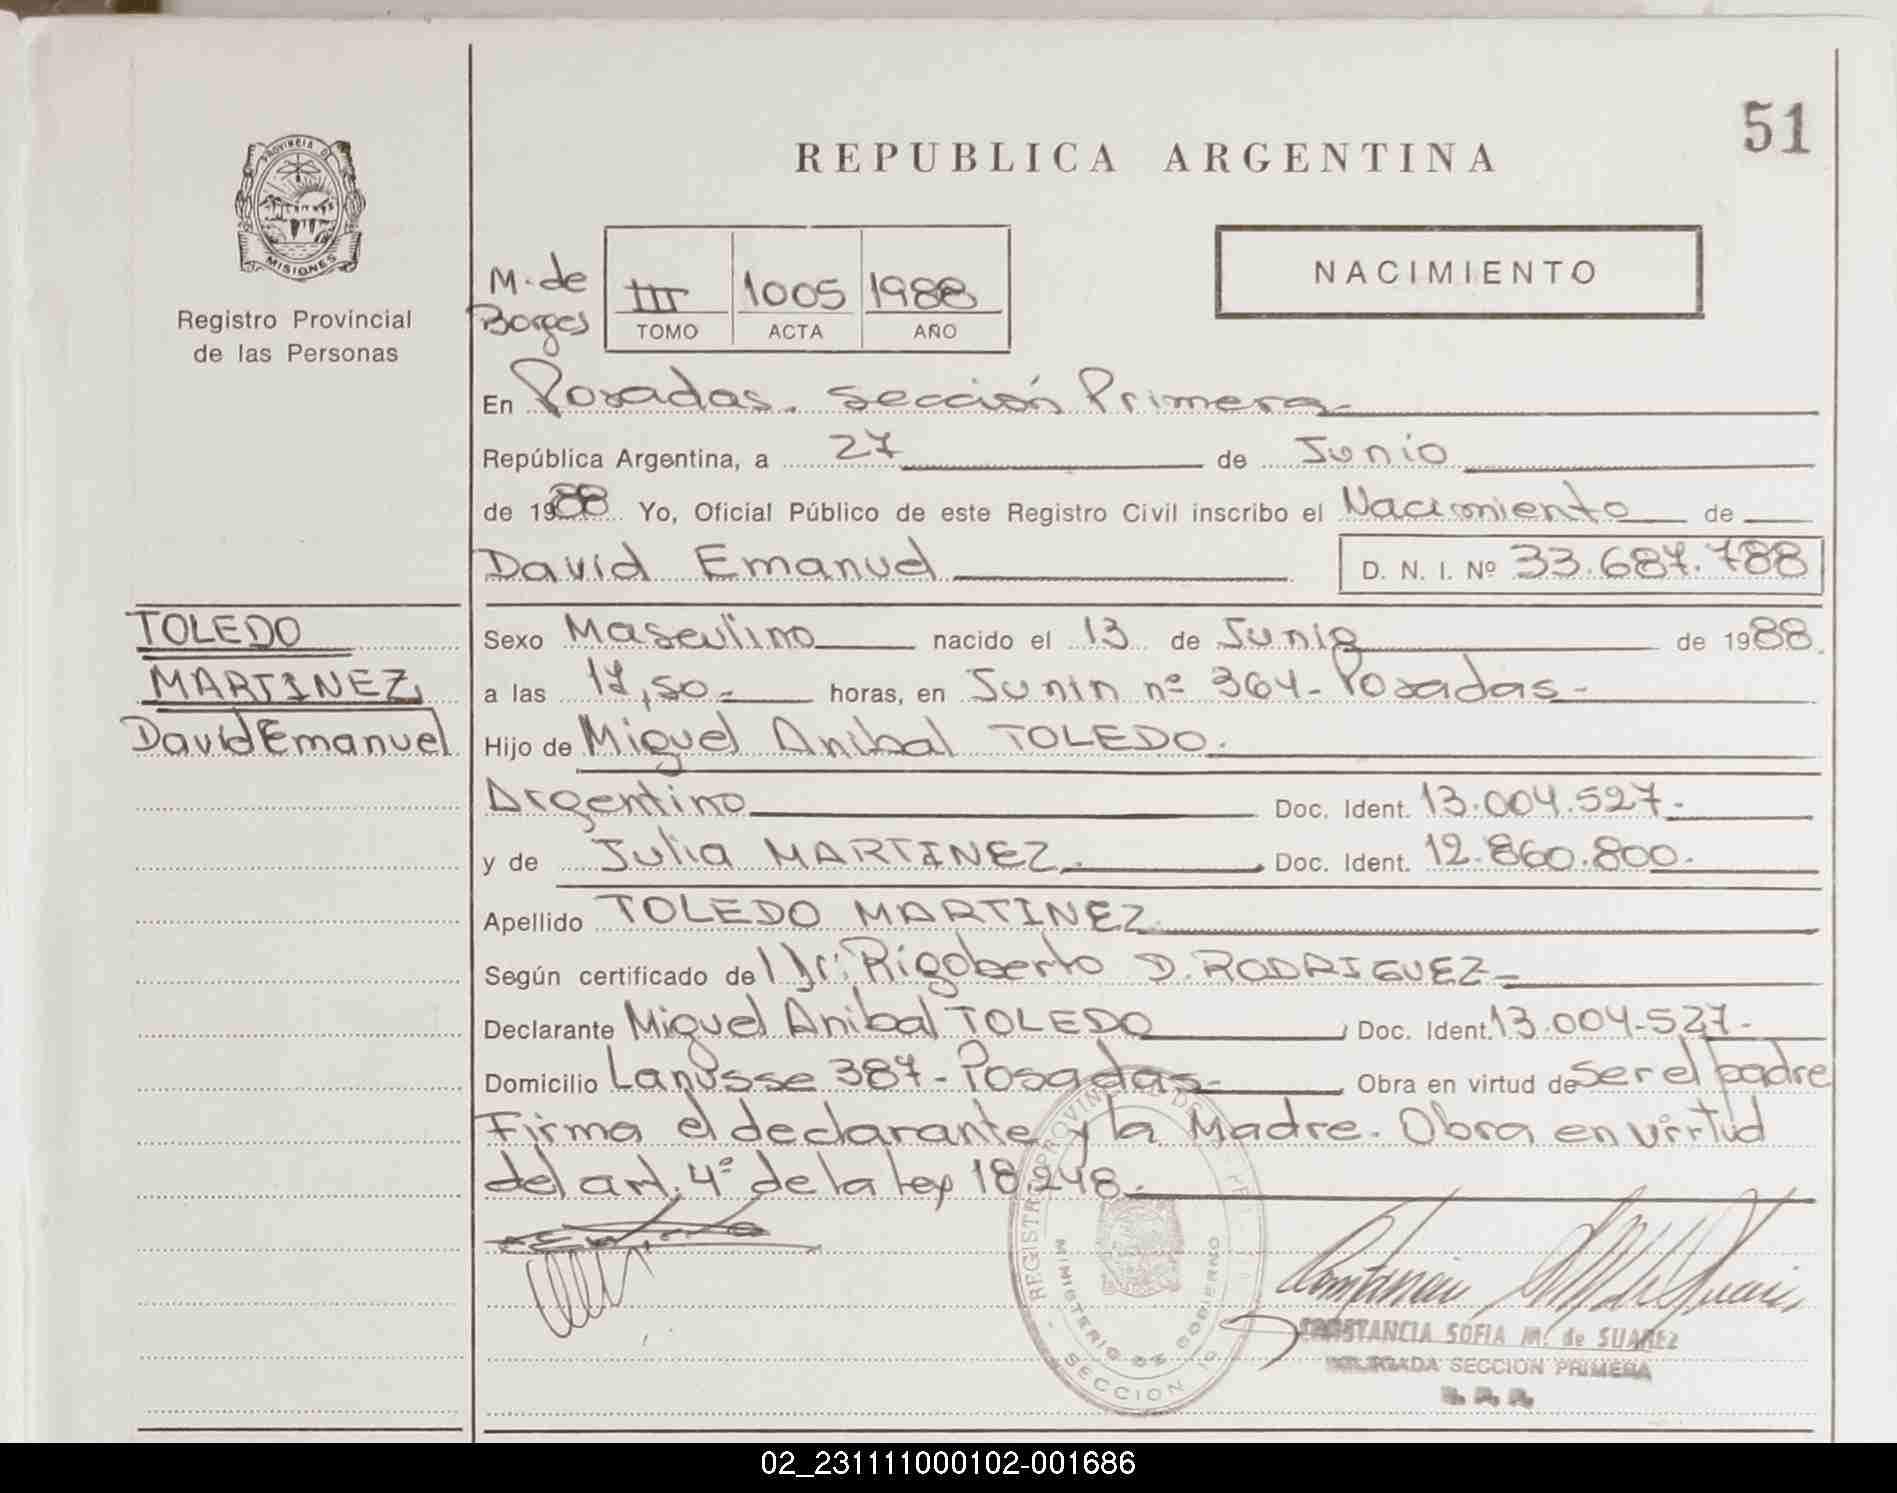 51
PROVINCIA D
MISIONES
Registro Provincial
de las Personas
REPUBLICA ARGENTINA
NACIMIENTO
M. de
Borges
III 1005 1988
TOMO ACTA AÑO
En Posadas. sección Primera
República Argentina, a 27 de Junio
de 1988 Yo, Oficial Público de este Registro Civil inscribo el Nacimiento de
David Emanuel D. N. I. Nº 33.687.788
TOLEDO
MARTINEZ
David Emanuel
Sexo Masculino nacido el 13 de Junio de 1988.
a las 17,50.- horas, en Junin nº 364- Posadas-
Hijo de Miguel Anibal TOLEDO.
Argentino Doc. Ident. 13.004.527.-
y de Julia MARTINEZ, Doc. Ident. 12.860.800.-
Apellido TOLEDO MARTINEZ
Según certificado de Dr: Rigoberto D. RODRIGUEZ-
Declarante Miguel Anibal TOLEDO, Doc. Ident. 13.004-527-
Domicilio Lanusse 387- Posadas- Obra en virtud de ser el padre
Firma el declarante y la Madre. Obra en virtud
del art. 4º de la ley 18.248.
REGISTRO PROVINCIAL DE
MINISTERIO DE GOBIERNO
SECCION
CONSTANCIA SOFIA M. de SUAREZ
DELEGADA SECCION PRIMERA
02_231111000102-001686